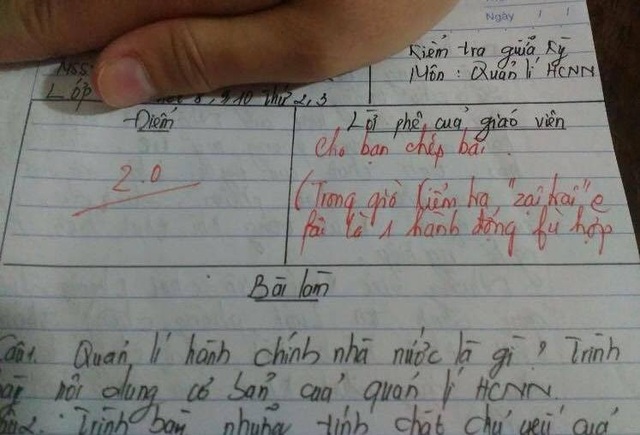 Ngày
Kiểm tra giữa kỳ
Môn : Quản lí HCNN
MSS
LỚP 8, 9, 10 Thứ 2, 3
Điểm
Lời phê của giáo viên
2.0
Cho bạn chép bài.
(Trong giờ kiểm tra, "zai trai" e
fải là 1 hành động fù hợp
Bài làm
Câu 1. Quản lí hành chính nhà nước là gì? Trình
bày nội dung cơ bản của quản lí HCNN.
Câu 2. Trình bày những tính chất chủ yếu của